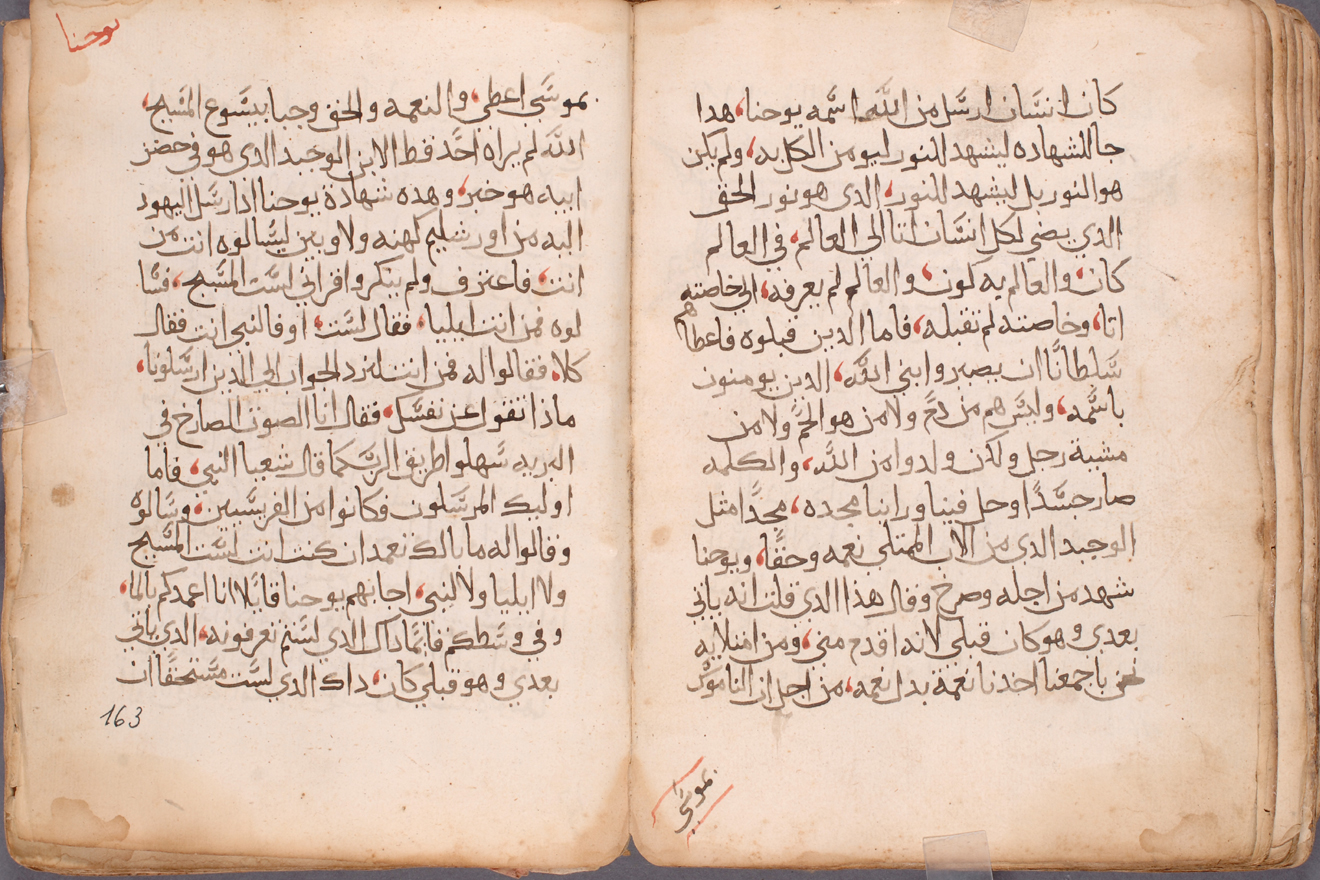 كان انسان ارسل من الله اسمه يوحنا، هدا
جا للشهاده ليشهد للنور ليومن الكل به، ولم يكن
هو النور بل ليشهد للنور، الدى هو نور الحق
الدي يضي لكل انسان اتا الي العالم، في العالم
كان، والعالم به كون، والعالم لم يعرفه، الي خاصته
اتا، وخاصته لم تقبله، فاما الدين قبلوه فاعطاهم
سلطانًا ان يصيروا بني الله، الدين يومنون
باسمه، وليس هم من دم ولا من هوا لحم ولا من
مشية رجل ولاكن ولدوا من الله، والكلمه
صار جسدًا وحل فينا وراينا مجده، مجدًا مثل
الوحيد الدى من الاب الممتلي نعمه وحقًا، ويوحنا
شهد من اجله وصرخ وقال هذا الدي قلت انه ياتي
بعدي وهو كان قبلي لانه اقدم مني، ومن امتلايه
نحن باجمعنا اخدنا نعمة بدل نعمه، من اجل ان الناموس
بموسى
يوحنا
بموسى اعطي، والنعمه والحق وجبا بيسوع المسيح،
الله لم يراه احد قط الابن الوحيد الدى هو في حضن
ابيه هو خبر، وهده شهادة يوحنا اذ ارسل اليهود
اليه من اورشليم كهنه ولاويين ليسالوه انت من
انت، فاعترف ولم ينكر واقر اني لست المسيح، فسا
لوه فمن انت ايليا، فقال لست، اوفالنبي انت فقال
كلا، فقالوا له فمن انت لنرد الجواب الي الدين ارسلونا،
ماذا تقول عن نفسك، فقال انا الصوت الصارخ في
البريه سهلوا طريق الرب كما قال شعيا النبي، فاما
اوليك المرسلون فكانوا من الفريسيين، وسالوه
وقالوا له ما بالك تعمد ان كنت انت لست المسيح
ولا ايليا ولا النبي، اجابهم يوحنا قايلا انا اعمدكم بالما،
وفي وسطكم قايمًا داك الدي لستم تعرفونه، الدي ياتي
بعدي وهو قبلي كان، داك الدي لست مستحقًا ان
163